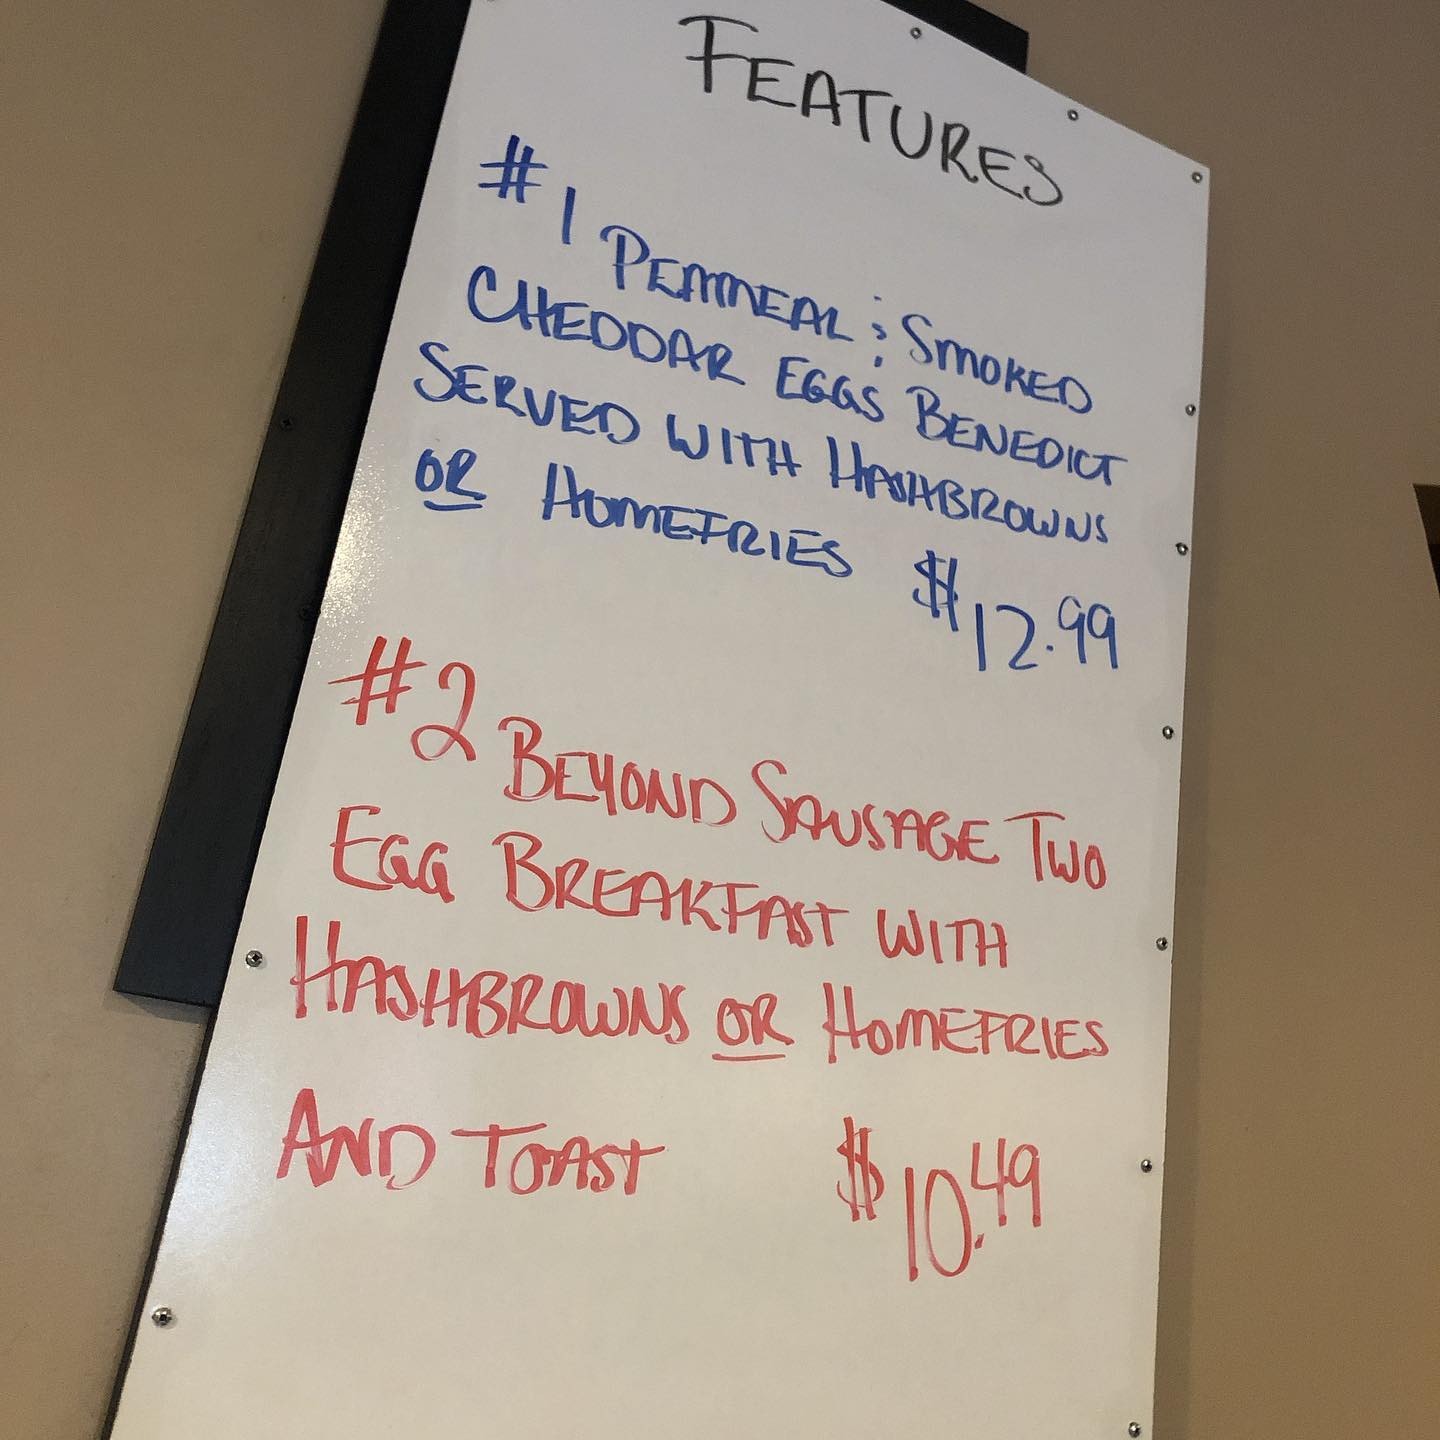 FEATURES
#1 PEAMEAL & SMOKED
CHEDDAR EGGS BENEDICT
SERVED WITH HASHBROWNS
OR HOMEFRIES $12.99
#2 BEYOND SAUSAGE TWO
EGG BREAKFAST WITH
HASHBROWNS OR HOMEFRIES
AND TOAST $10.49